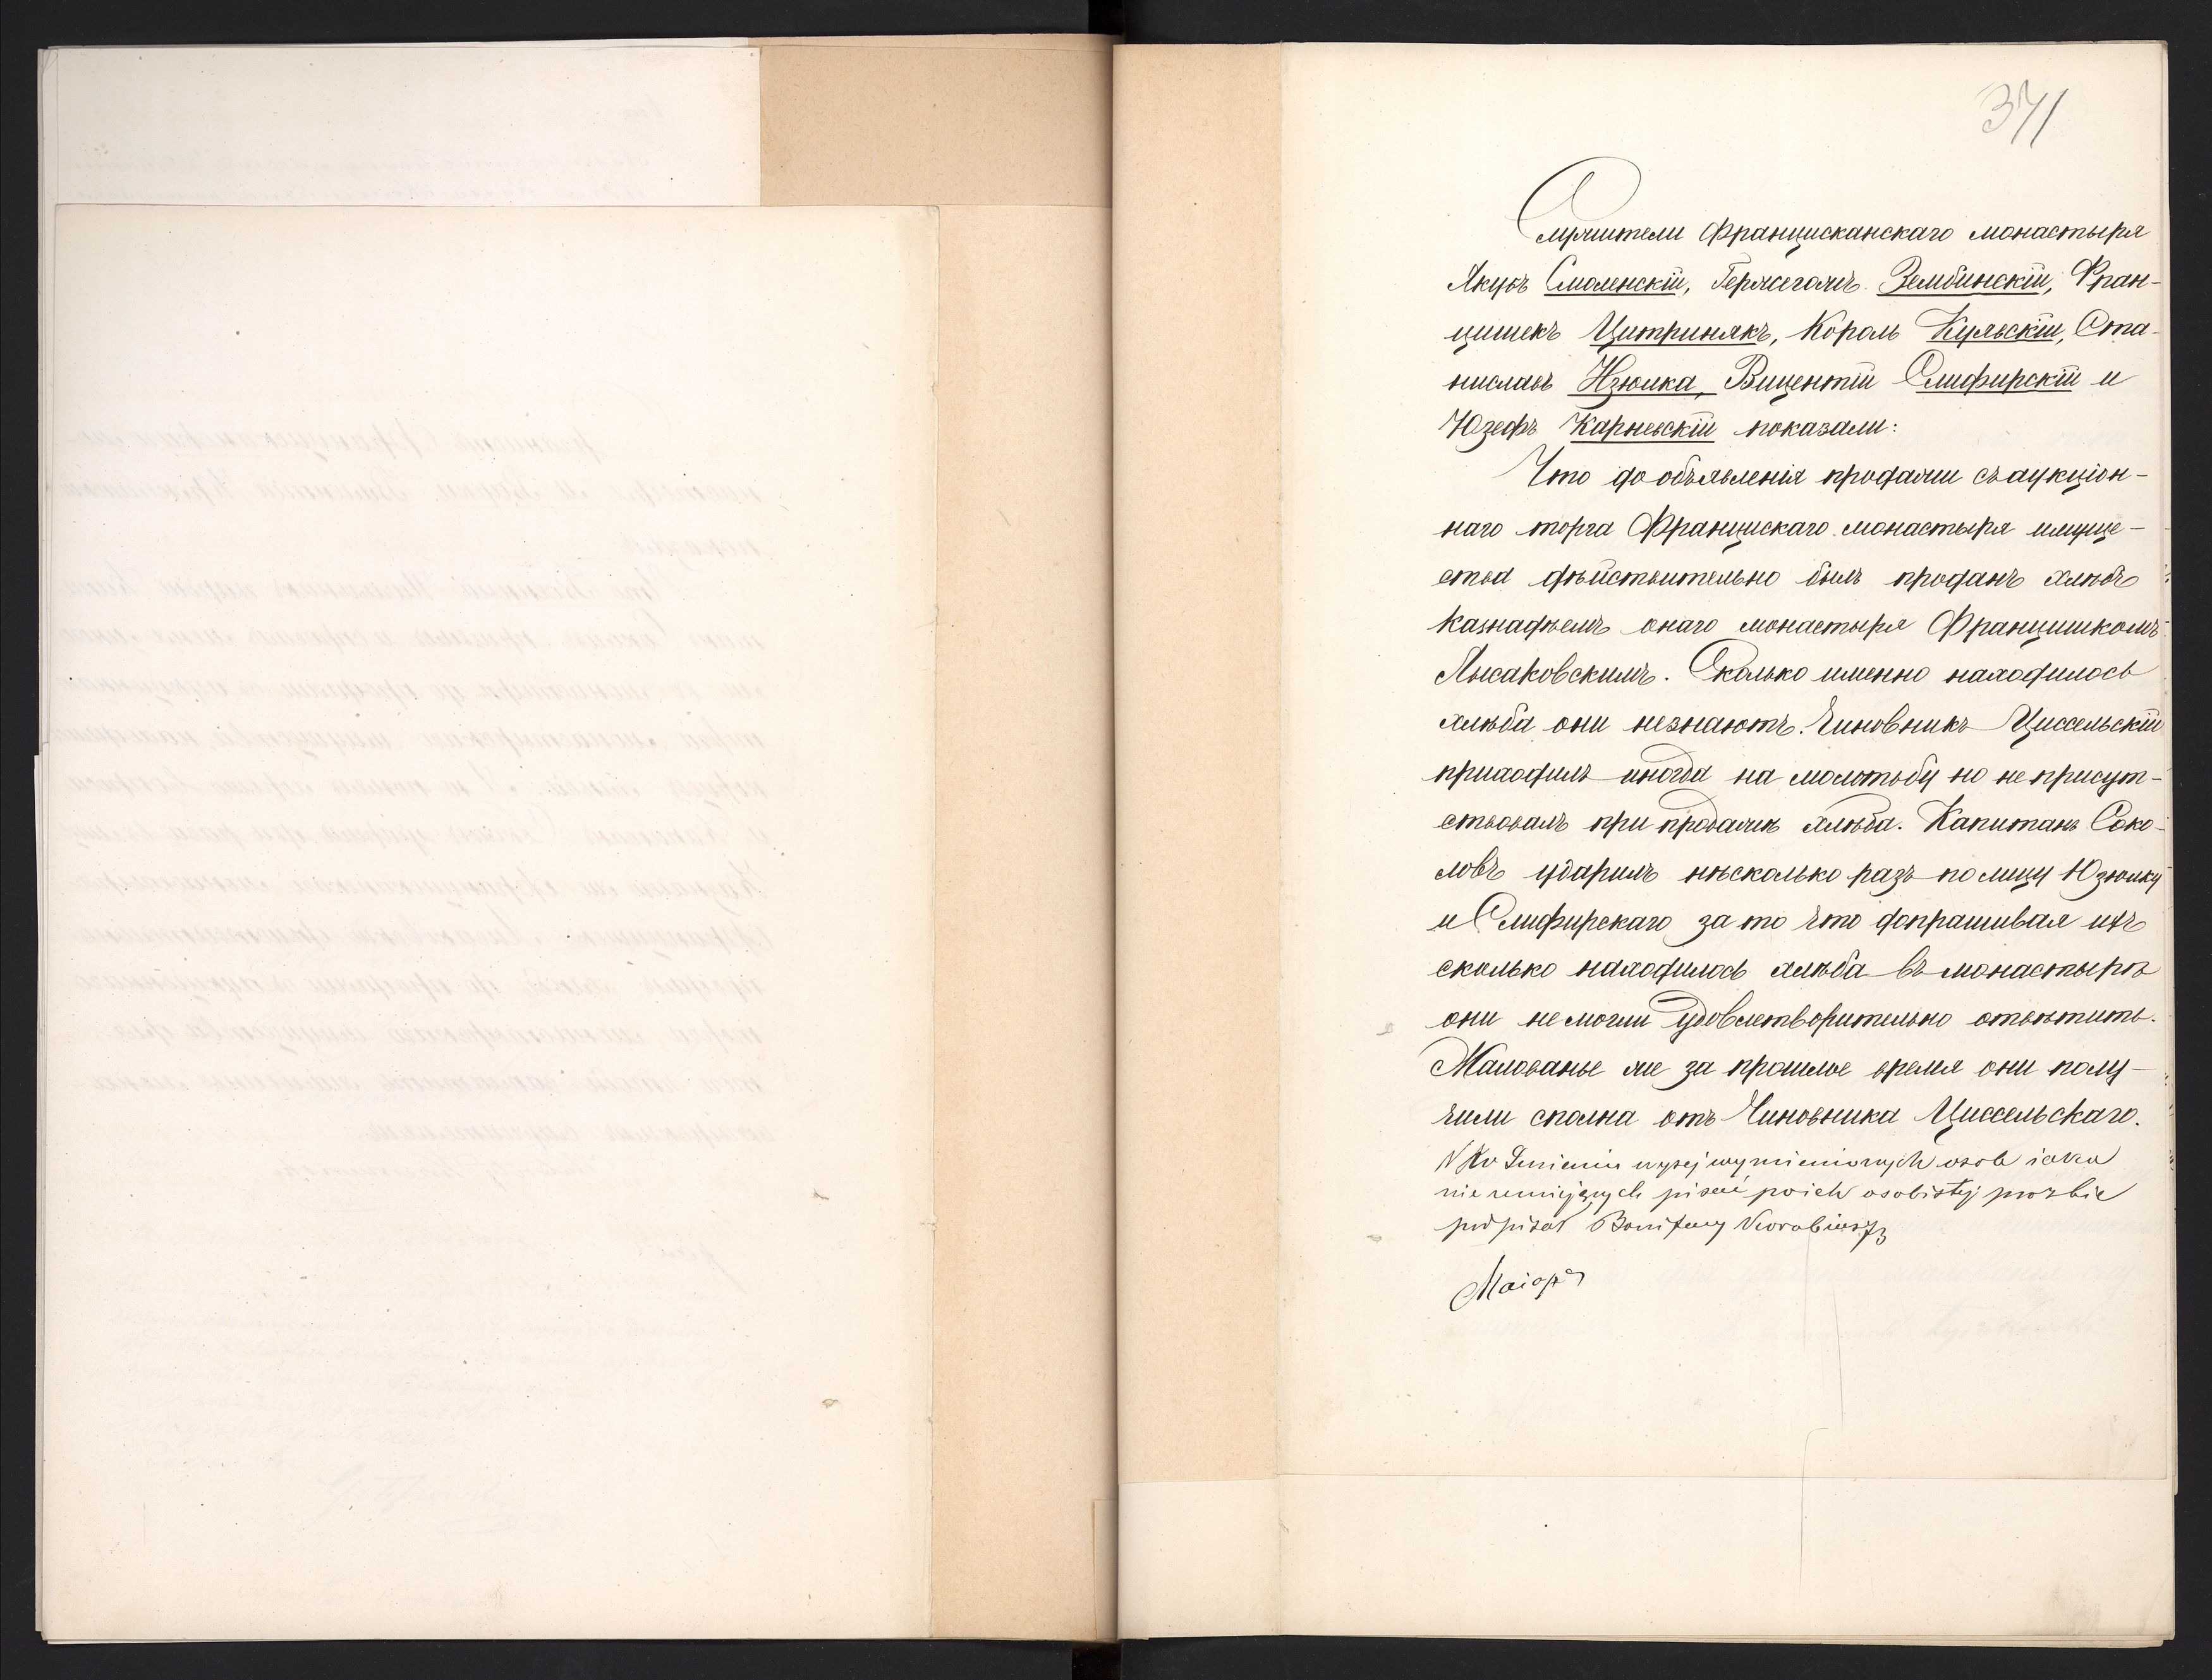 371
Служители Францисканскаго монастыря
Якубъ Смоленскій, Гержегожъ Зембинскій, Фран-
цишекъ Цитринякъ, Король Кульскій, Ста-
ниславъ Юзюлка, Вицентій Слифирскій и
Юзефъ Карневскій показали:
Что до объявленія продажи съ аукціон-
наго торга Францискаго монастыря имуще-
ства дѣйствительно былъ проданъ хлѣбъ
казнадѣемъ онаго монастыря Францишкомъ
Лысаковскимъ. Сколько именно находилось
хлѣба они незнаютъ. Чиновникъ Циссельскій
приходилъ иногда на молотьбу но не присут-
ствовалъ при продажѣ хлѣба. Капитанъ Соко-
ловъ ударилъ нѣсколько разъ по лицу Юзюлку
и Слифирскаго за то что допрашивая ихъ
сколько находилось хлѣба въ монастырѣ
они не могли удовлетворительно отвѣтить.
Жалованье же за прошлое время они полу-
чили сполна отъ Чиновника Циссельскаго.
W Imieniu wyżej wymienionych osob iako
nie umiejących pisać po ich osobistej prozbie
podpisał Bonifacy
Маіоръ